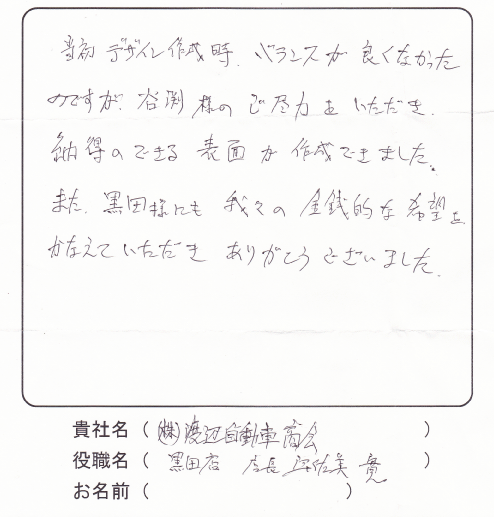 当初 デザイン作成時、バランスが良くなかった
のですが、谷渕様のご尽力をいただき、
納得のできる表面が作成できました。
また、黒田様にも我々の金銭的な希望を
かなえていただきありがとうございました。
貴社名（㈱渡辺自動車商会）
役職名（黒田店 店長 宇佐美 寛）
お名前（ ）